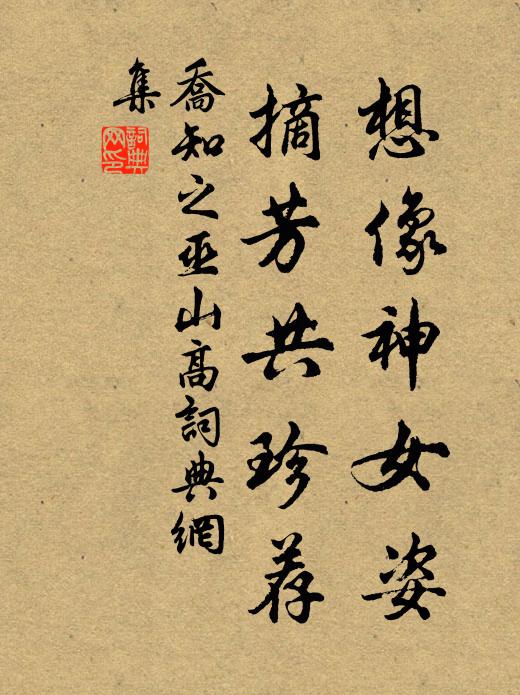 想像神女姿
摘芳共珍荐
喬知之巫山高詞典網
集
詞典网印